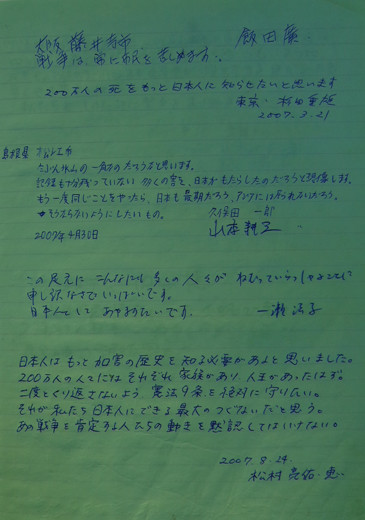 大阪 藤井寺市 飯田
戦争は、常に市民を苦しめる。
200万人の死をもっと日本人に知らせたいと思います
東京・ 杉田
2007.3.21
島根県 松江市
の一部なのだろうなと思います。
もう一度同じことをやったら、日本も最期だろう、アジアには
そうならないようにしたいもの。 久保田 一郎
2007年4月30日 山本
この足元に こんなにも多くの人々が ねむっていらっしゃることに
申し訳なさでいっぱいです。
日本人として あやまりたいです。 一瀬 法子
日本人はもっと加害の歴史を知る必要があると思いました。
200万人の人々にはそれぞれ 家族があり、人生があったはず。
二度とくり返さないよう、憲法9条を絶対に守りたい。
それが私たち日本人にできる最大のつぐないだと思う。
あの戦争を肯定する人たちの動きを黙認してはいけない。
2007.8.24.
松村 亮佑・恵